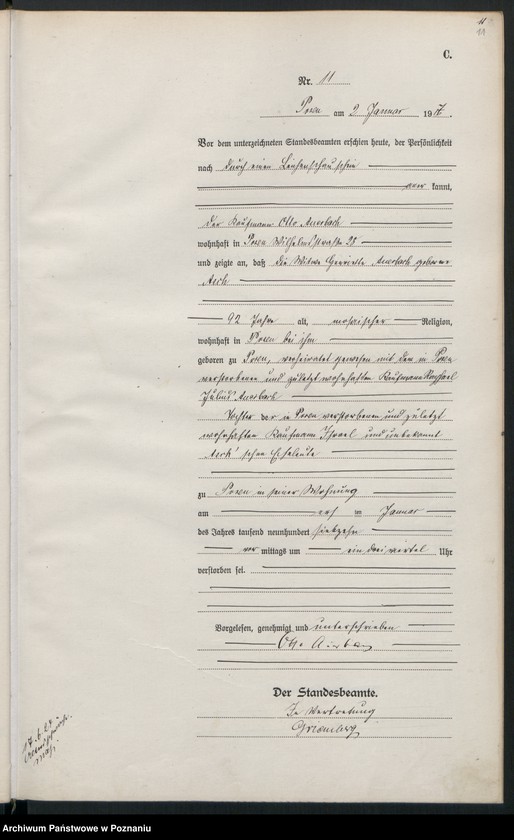 11
11
C.
Nr. 11
Posen am 2 Januar 1917.
Vor dem unterzeichneten Standesbeamten erschien heute, der Persönlichkeit
nach durch einen Leichenschauschein
kannt,
der Kaufmann Otto Auerbach
wohnhaft in Posen Wilhelmstraße 28
und zeigte an, daß die Witwe Henriette Auerbach geborene
Asch
92 Jahre alt, mosaischer Religion,
wohnhaft in Posen bei ihm
geboren zu Posen, verheiratet gewesen mit dem in Posen
verstorbenen und zuletzt wohnhaften Kaufmann Raphael
Julius Auerbach
Tochter der in Posen verstorbenen und zuletzt
wohnhaften Kaufmann Israel und unbekannt
Asch'schen Eheleute
zu Posen in seiner Wohnung
am ersten Januar
des Jahres tausend neunhundert siebzehn
vor mittags um ein dreiviertel Uhr
verstorben sei.
Vorgelesen, genehmigt und unterschrieben
Otto Auerbach
Der Standesbeamte.
In Vertretung
17.6.
Archiwum Państwowe w Poznaniu